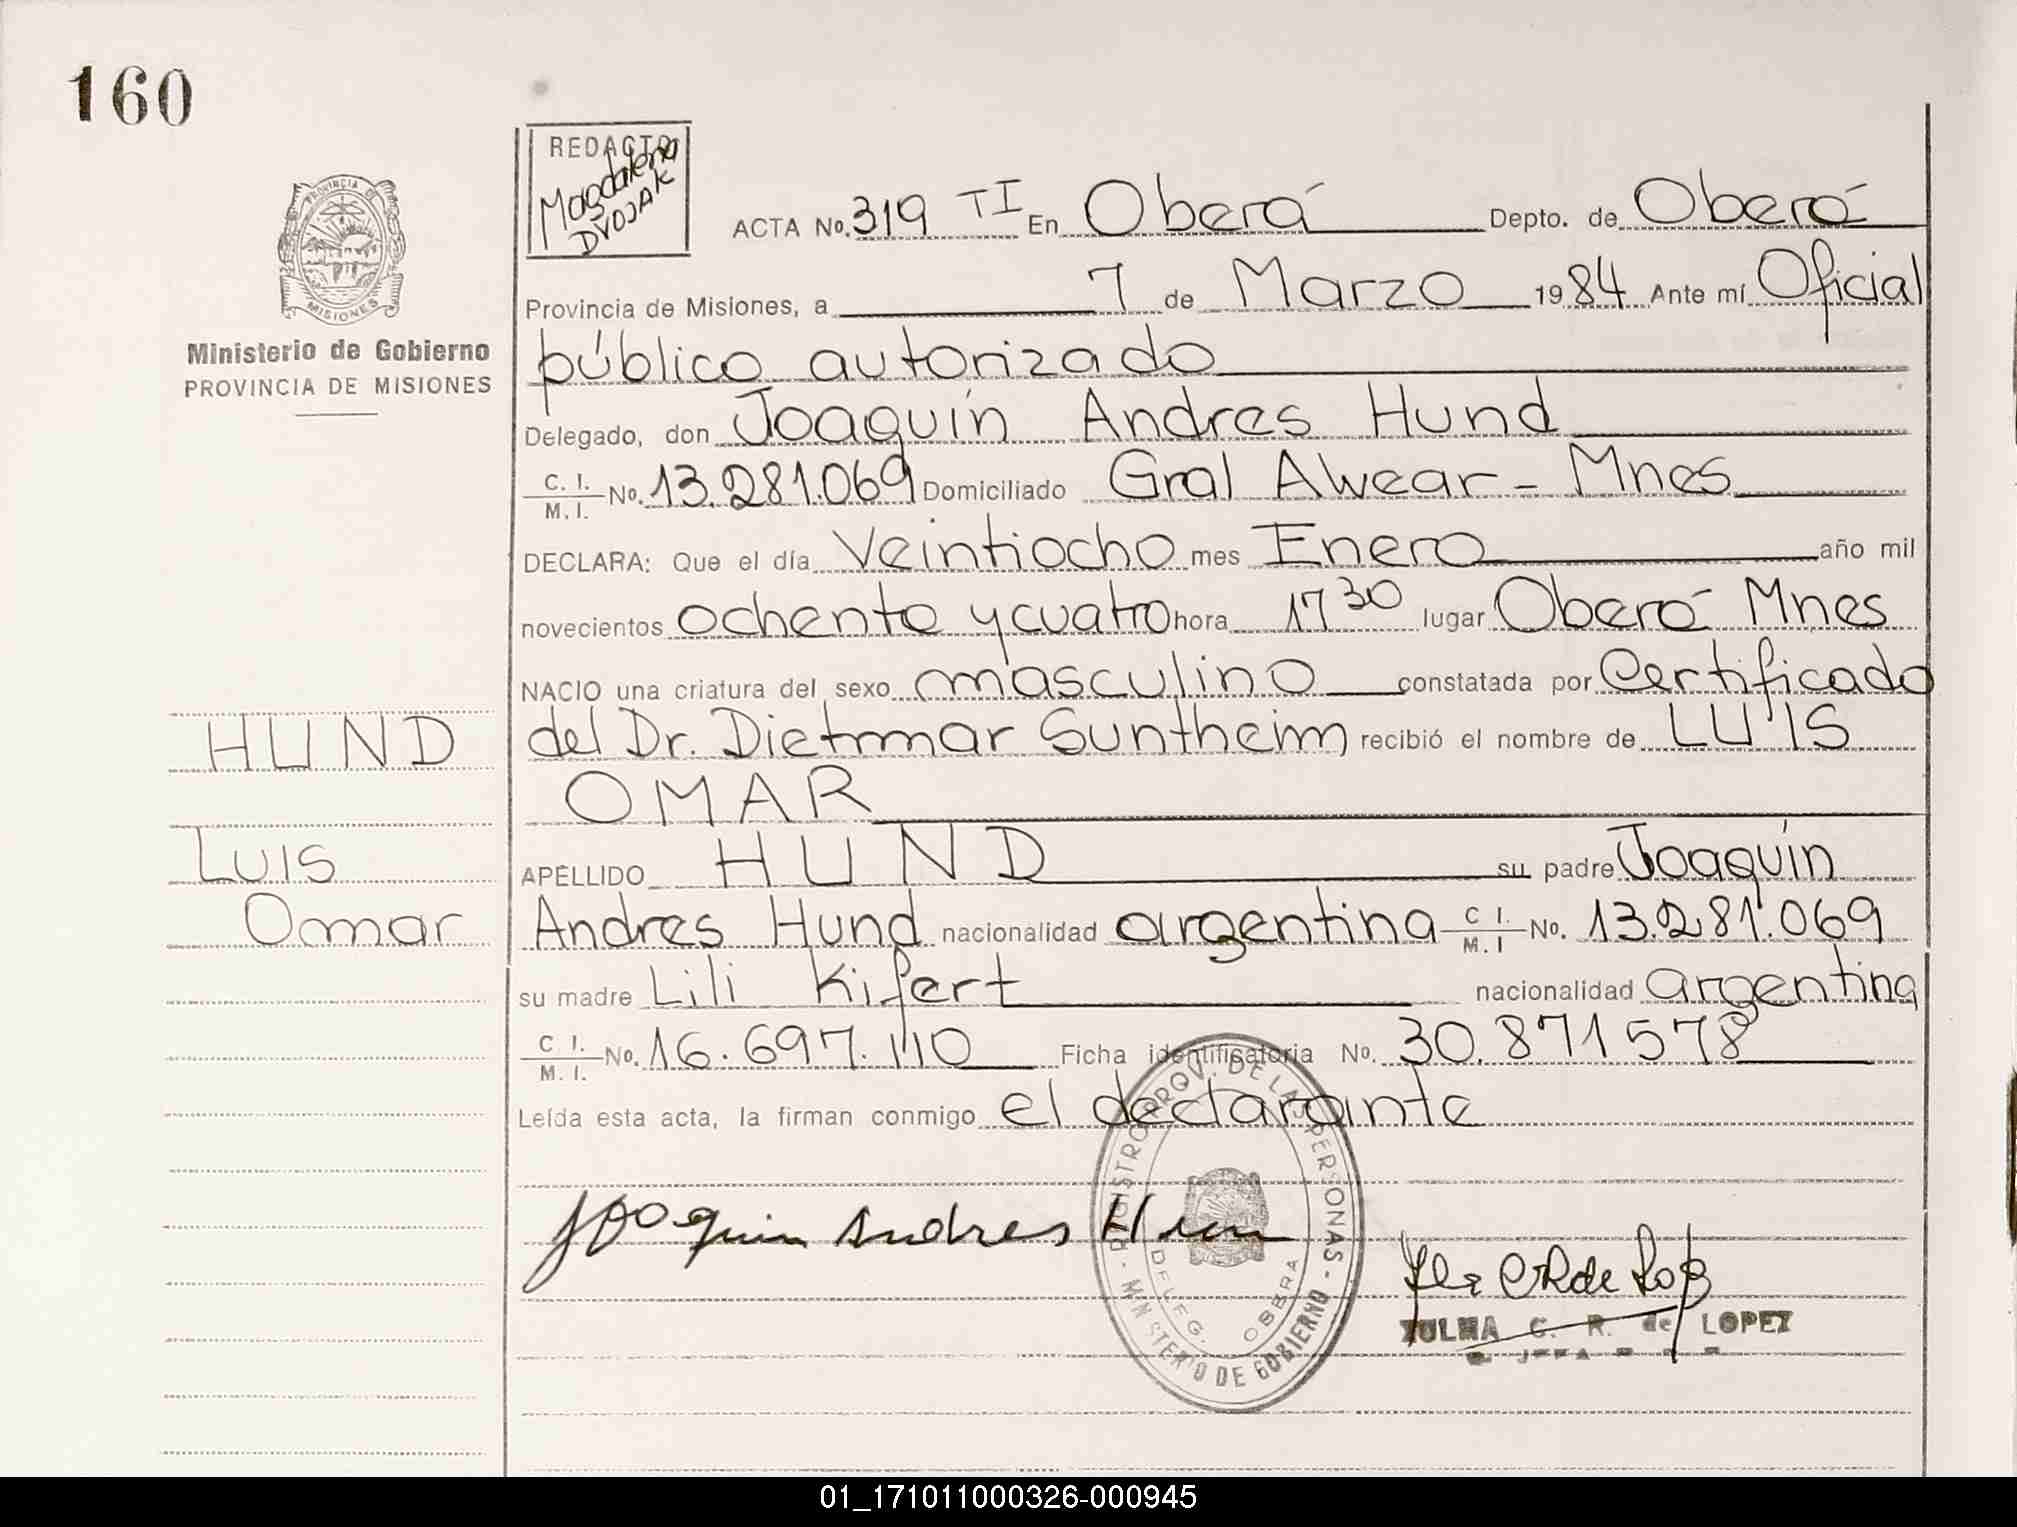 160
REDACTO
Magdalena
DVOJAK
PROVINCIA DE
MISIONES
Ministerio de Gobierno
PROVINCIA DE MISIONES
ACTA No. 319 TI En Oberá Depto. de Oberá
Provincia de Misiones, a 7 de Marzo 1984 Ante mí Oficial
público autorizado
Delegado, don Joaquín Andres Hund
C. I. / M. I. No. 13.281.069 Domiciliado Gral Alvear - Mnes
DECLARA: Que el día Veintiocho mes Enero año mil
novecientos ochenta y cuatro hora 17 30 lugar Oberá Mnes
NACIO una criatura del sexo masculino constatada por Certificado
del Dr. Dietmar Suntheim recibió el nombre de LUIS
OMAR
APELLIDO HUND su padre Joaquín
Andres Hund nacionalidad argentina C I. / M. I No. 13.281.069
su madre Lili Kifert nacionalidad argentina
C I. / M. I. No. 16.697.110 Ficha identificatoria No. 30.871578
Leída esta acta, la firman conmigo el declarante
HUND
LUIS
Omar
Joaquin Andres Hun
REGISTRO PROV. DE LAS PERSONAS - MINISTERIO DE GOBIERNO -
DELEG. OBERA
ZULMA C. R. de LOPEZ
01_171011000326-000945